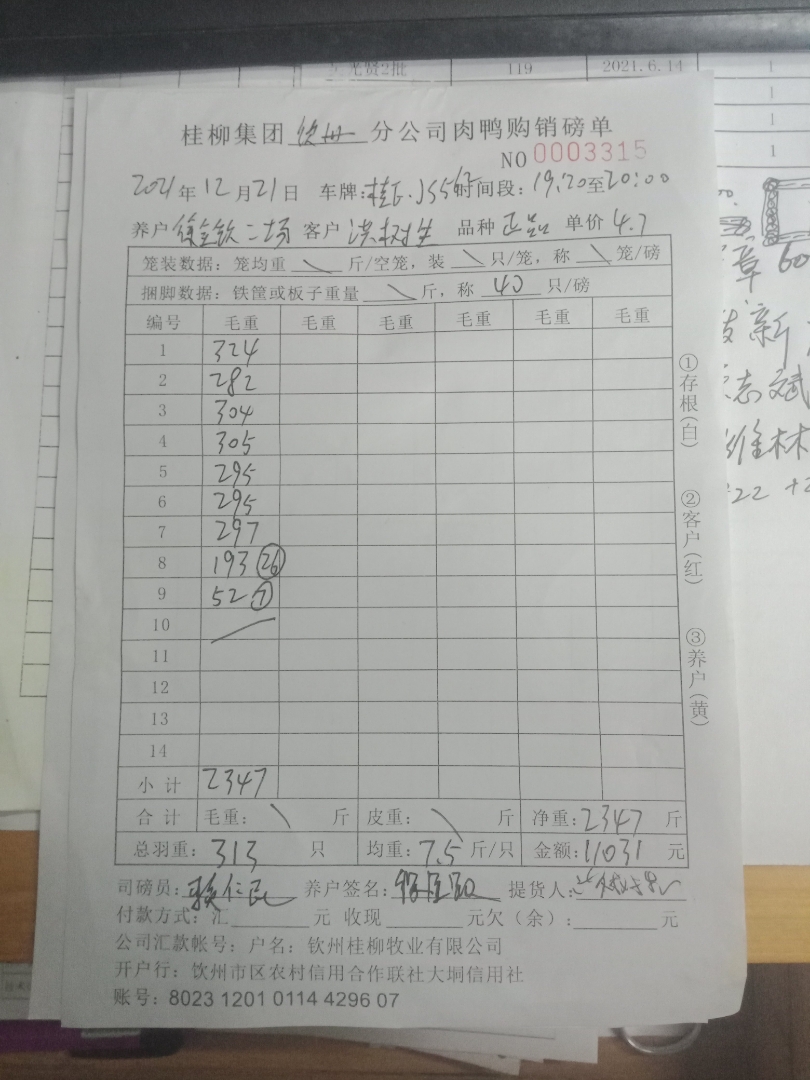 光贤2批 119 2021.6.14 1
1
1
1
桂柳集团 钦州 分公司肉鸭购销磅单
NO 0003315
2021年12月21日 车牌: 时间段:19:20至20:00
养户 二场 客户 洪树生 品种 正品 单价 4.7
笼装数据：笼均重 \ 斤/空笼，装 \ 只/笼，称 \ 笼/磅
捆脚数据：铁筐或板子重量 \ 斤，称 40 只/磅
编号 毛重 毛重 毛重 毛重 毛重 毛重
1 324
2 282
3 304
4 305
5 295
6 295
7 297
8 193 26
9 52 7
10
11
12
13
14
小计 2347
合计 毛重： \ 斤 皮重： \ 斤 净重：2347 斤
总羽重：313 只 均重：7.5 斤/只 金额：11031 元
司磅员： 养户签名： 提货人：
付款方式：汇 元 收现 元欠（余）： 元
公司汇款帐号：户名：钦州桂柳牧业有限公司
开户行：钦州市区农村信用合作联社大垌信用社
账号：8023 1201 0114 4296 07
①存根(白)
②客户(红)
③养户(黄)
章 60
新
志斌
维林
22